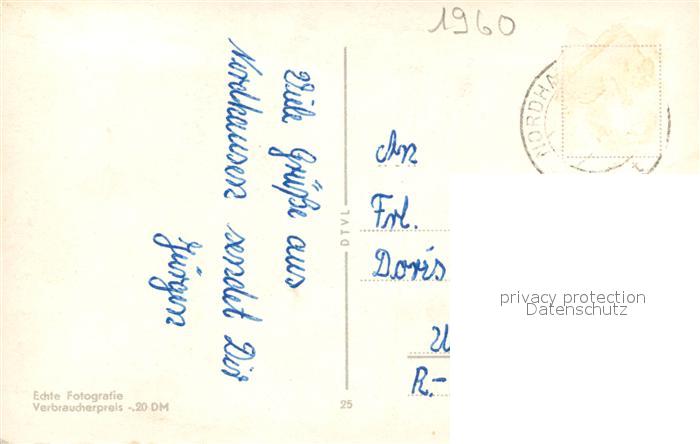 1960
Viele Grüße aus
Nordhausen sendet Dir
Jürgen
An
Frl.
Doris
R.-
NORDHA
DTVL
privacy protection
Datenschutz
Echte Fotografie
Verbraucherpreis -.20 DM
25